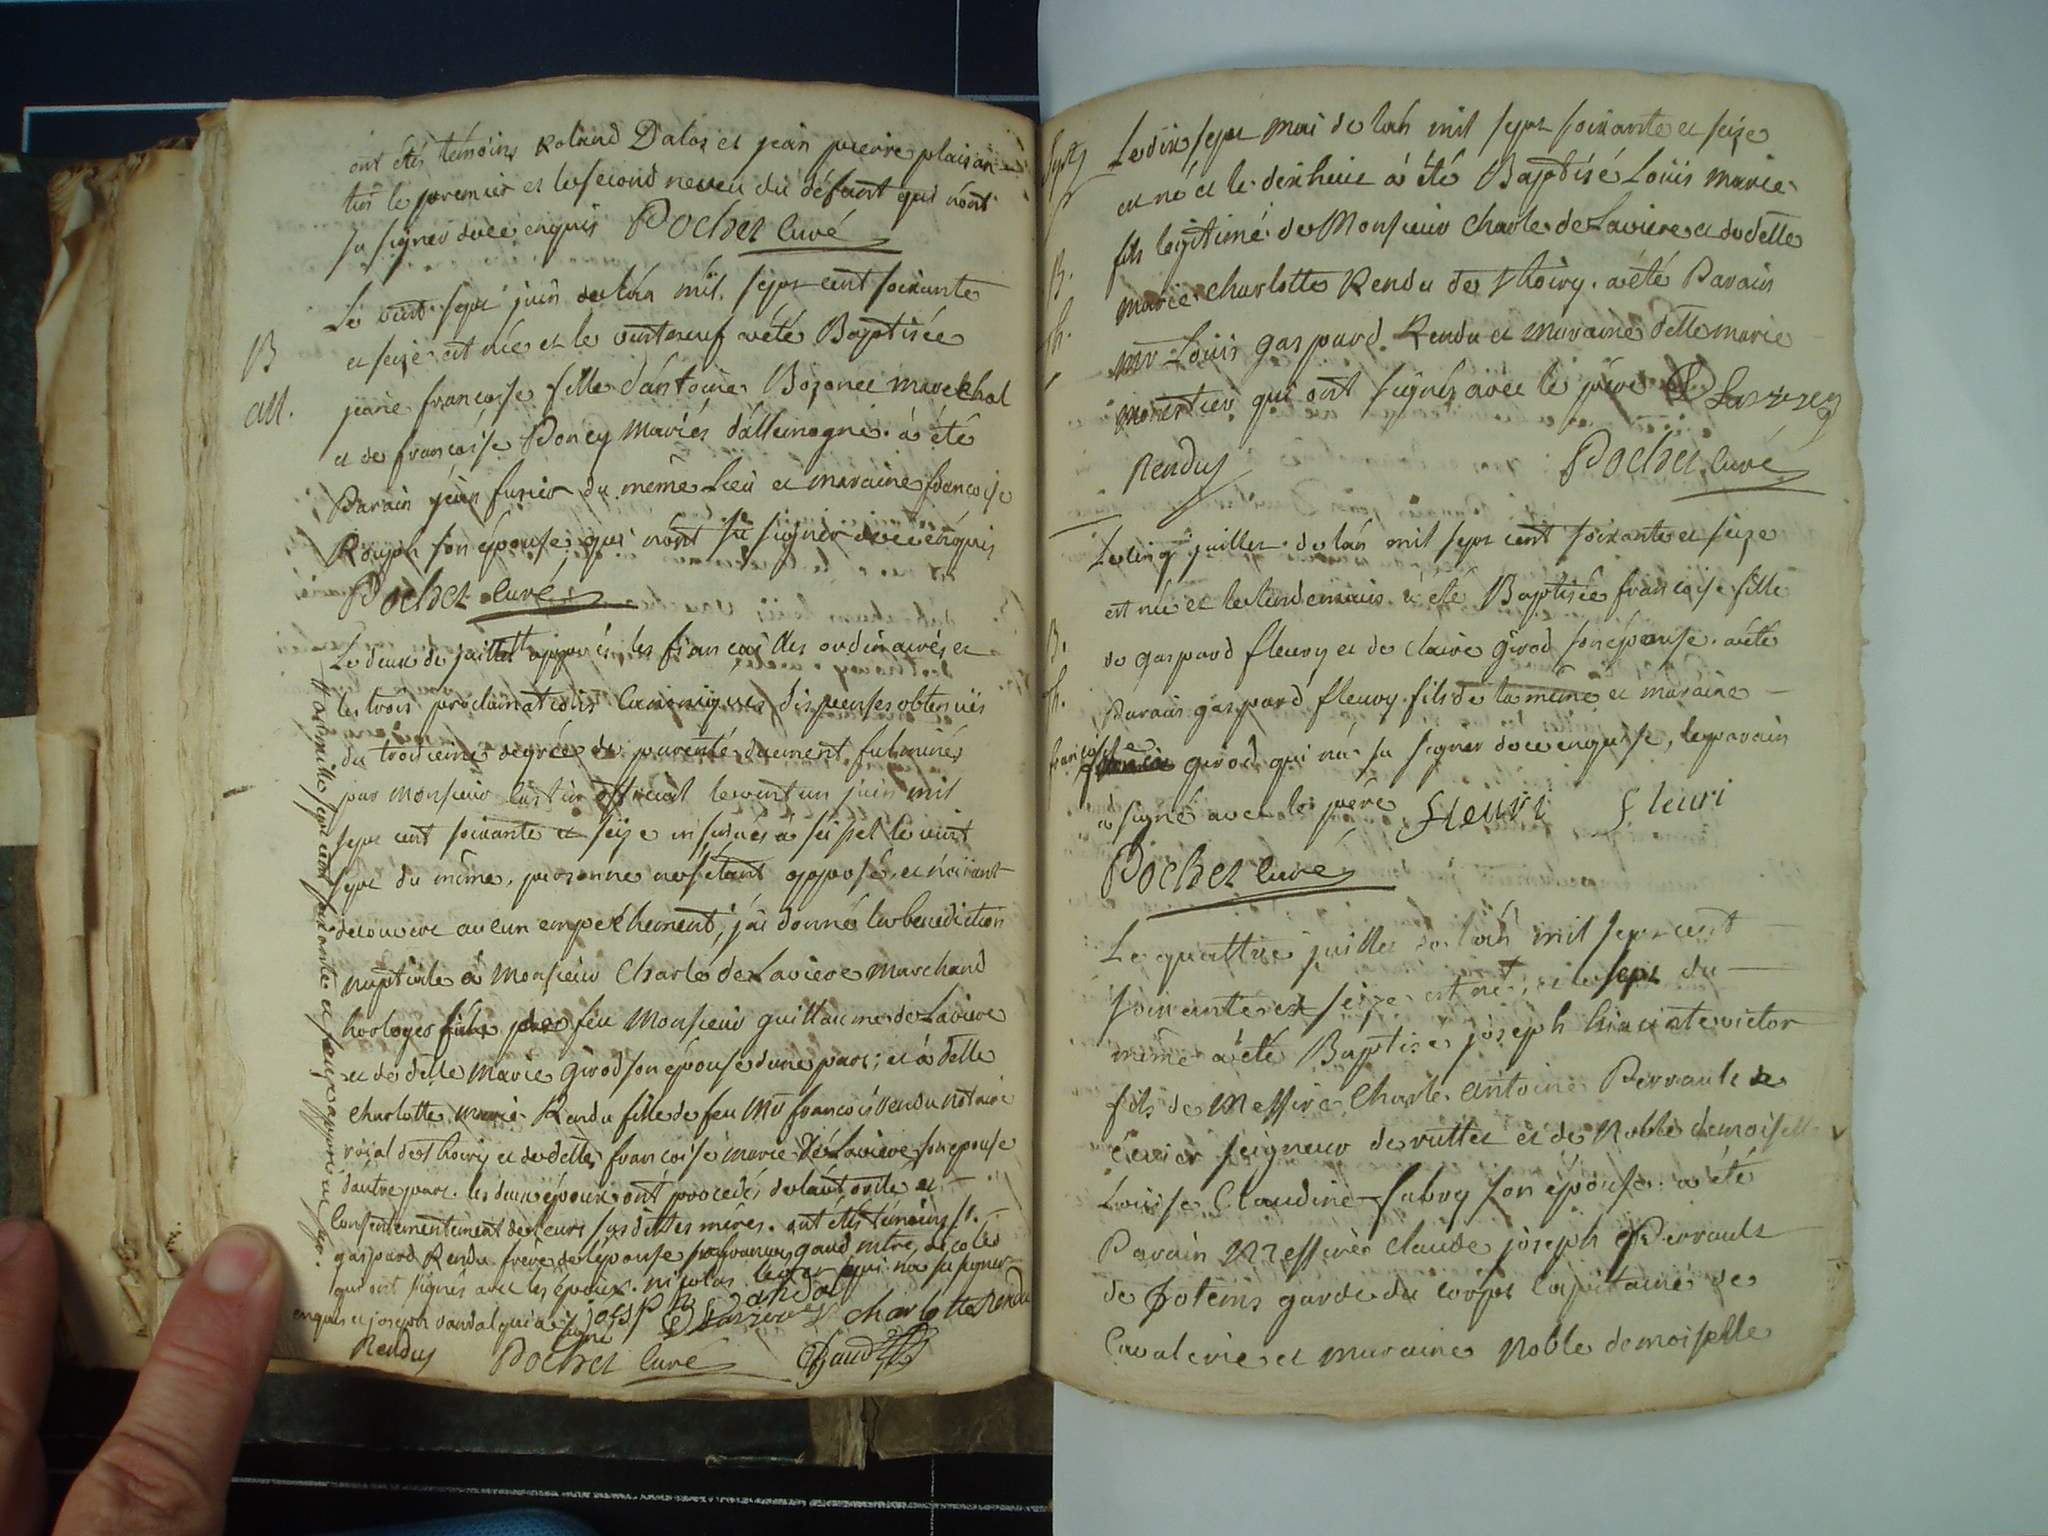 ont étés témoins Roland Dalos et jean pierre plaisan
tin le premier et le second neveu du défunt qui n'ont
su signer de ce enquis Pochet curé
Le vint sept juin de l'an mil sept cent soixante
B
et seize est née et le vintneuf a été Baptisée
all.
jeane francoise fille d'antoine Bozonet marechal
et de francoise Poncy mariés d'allemogne. a été
Parain jean fusier du même Lieu et maraine francoise
Roujon son épouse, qui n'ont su signer de ce enquis
Pochet curé
Le deux de juillet appres les fiancailles ordinaires et
les trois proclamations canoniques dispenses obtenües
du troisieme degrée de parenté duement fulminés
par Monsieur official le vint un juin mil
sept cent soixante et seize insinués a seissel le vint
sept du même, personne ne s'étant opposé, et n'aiiant
découvert aucun empechement, j'ai donné la benediction
nuptiale à Monsieur Charle de Laviere Marchand
horloger feu Monsieur guillaume de Laviere
et de delle Marie girod son epouse d'une part; et à delle
charlotte marie Rendu fille de feu Mr francois rendu notaire
roial de Thoiry et de delle francoise marie de Laviere son epouse
d'autre part. les deux époux ont procedés de l'autorité et
consentementiment de leurs susdittes mères. ont étés témoins sr.
gaspard Rendu frere de l'épouse gaud mtre de
qui ont signés avec les époux. nicolas qui n'a su signer
enquis et joseph vandal qui a signé joesph vandal charlotte Rendu
Rendu Pochet curé Gaud
mille sept cent soixante et seize
Le dix sept Mai de l'an mil sept soixante et seize
est né et le dixhuit a été Baptisé Loüis marie
fils legitimé de Monsieur charle de Laviere et de delle
B.
marie charlotte Rendu de Thoiry. a été Parain
th.
Mr Loüis gaspard Rendu et maraine delle marie
monestier qui ont signés avec le père
Rendu Pochet curé
Le cinq juillet de l'an mil sept cent soixante et seize
est née et le lendemain a été Baptisée francoise fille
B.
de gaspard fleury et de claire girod son épouse. a été
th.
Parain gaspard fleury fils de la même et maraine
francoise girod qui n'a su signer de ce enquise, le parain
a signé avec le père fleuri fleuri
Pochet curé
Le quattre juillet de l'an mil sept cent
soixante et seize est né, et le sept du
même a été Baptisé joseph hiacinte victor
fils de Messire Charle antoine Perrault de
seigneur de ruttet et de Noble demoiselle
Loüise Claudine fabry son épouse. a été
Parain Messire claude joseph Perrault
de Jotems garde du corps Capitaine de
Cavalerie et maraine Noble demoiselle